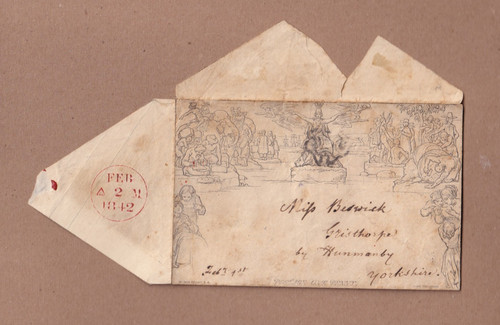 FEB
A 2 M
1842
Miss Beswick
Gristhorpe
by Hunmanby
Yorkshire.
Feby 1st